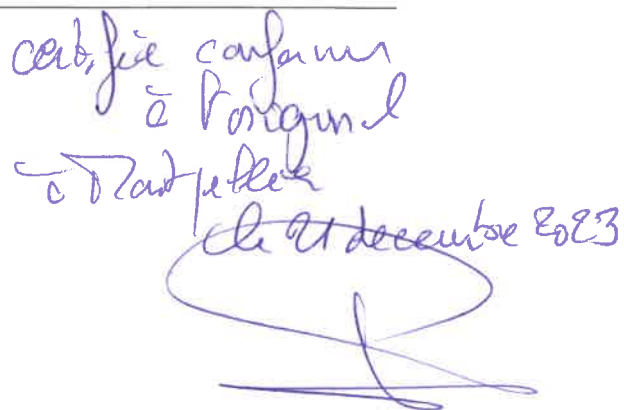 certifié conforme
à l'original
à Montpellier
le 21 decembre 2023